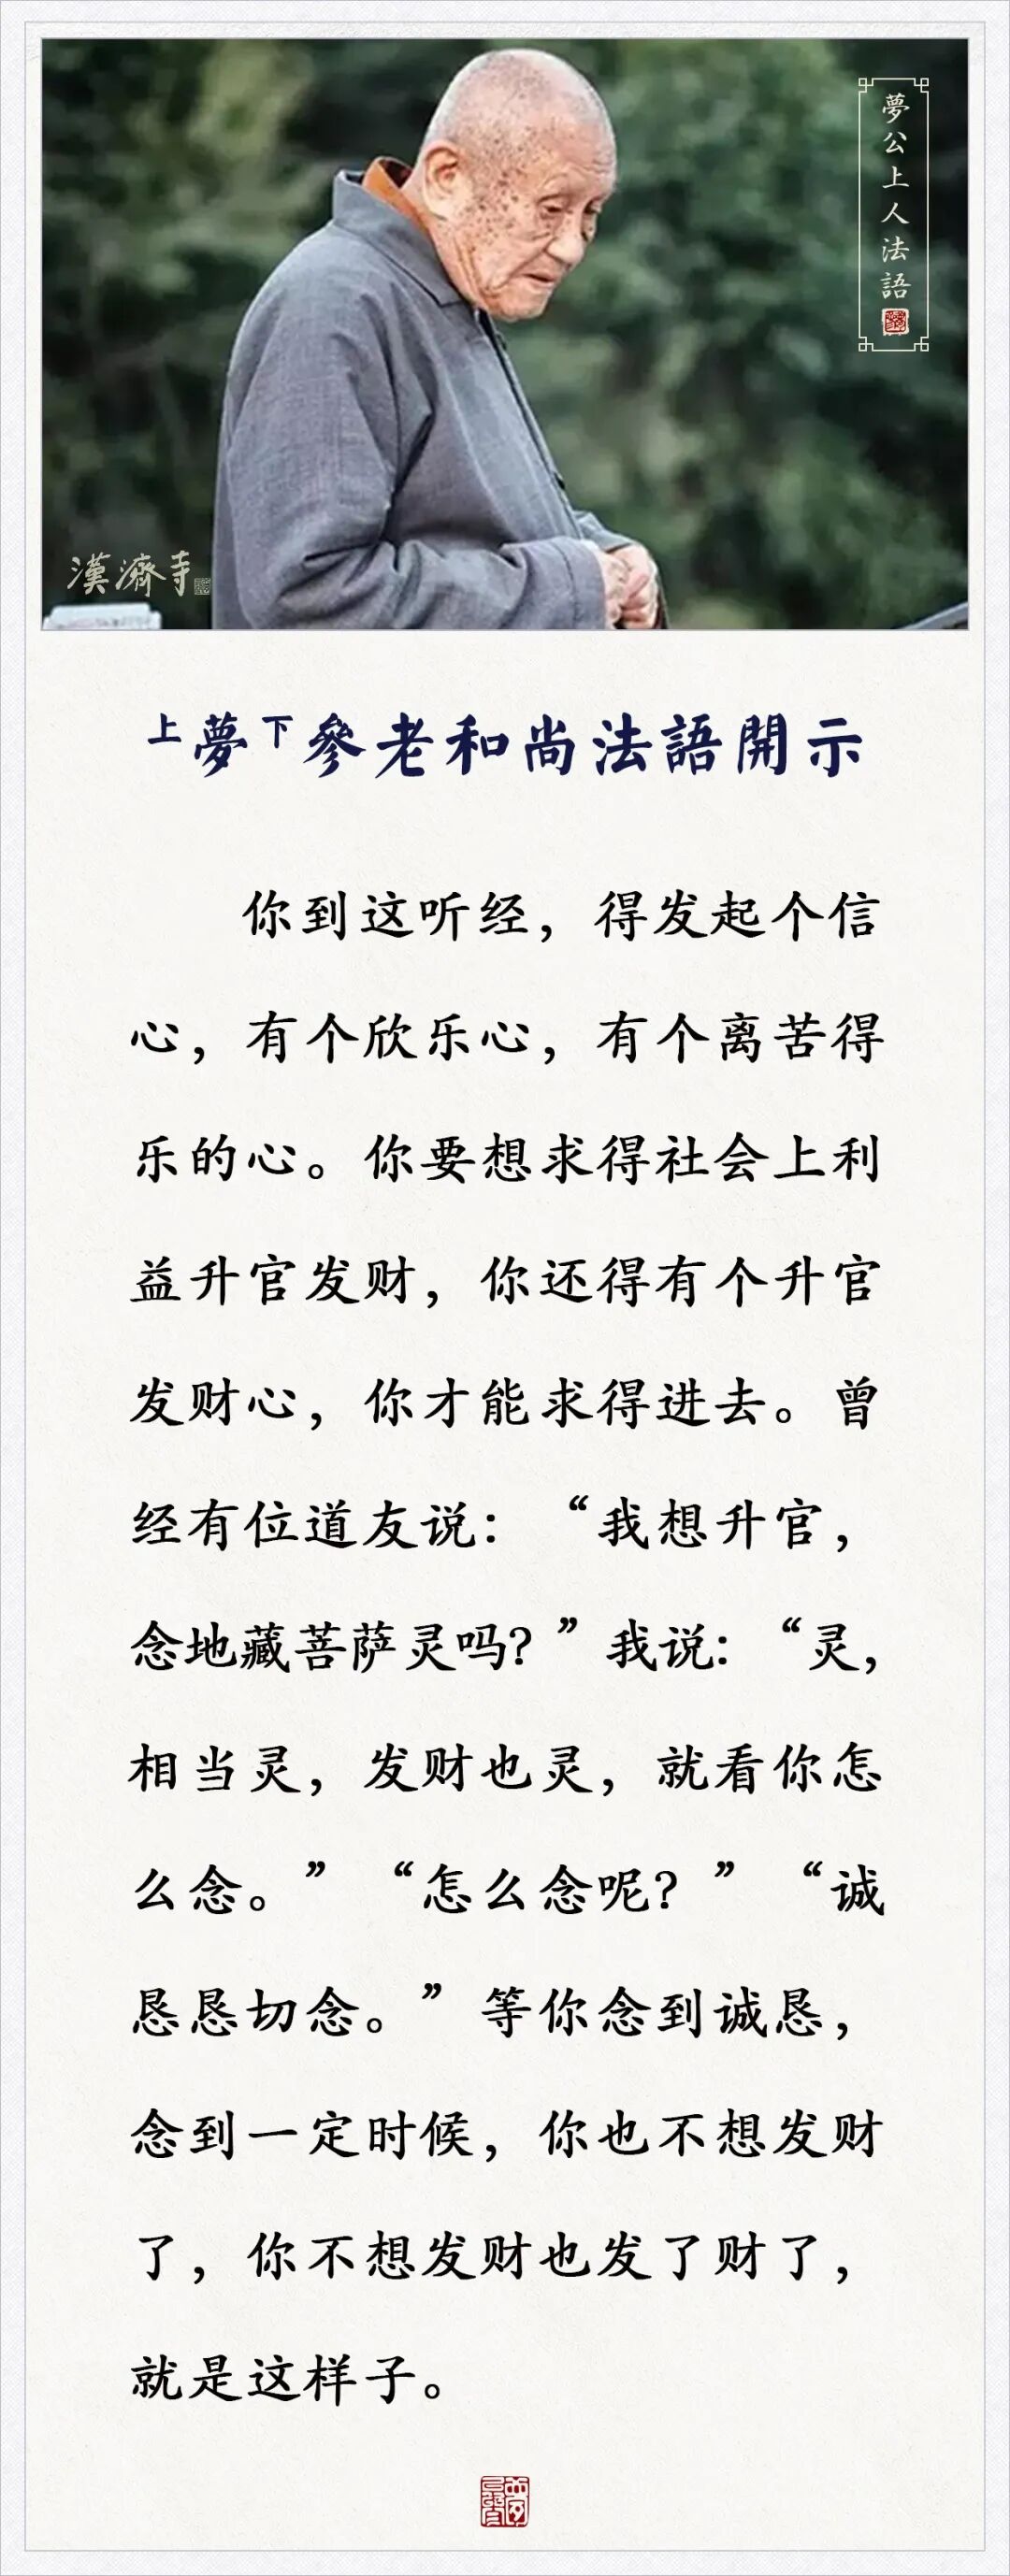 夢公上人法語
漢濟寺
上夢下參老和尚法語開示
你到这听经，得发起个信
心，有个欣乐心，有个离苦得
乐的心。你要想求得社会上利
益升官发财，你还得有个升官
发财心，你才能求得进去。曾
经有位道友说：“我想升官，
念地藏菩萨灵吗？”我说：“灵，
相当灵，发财也灵，就看你怎
么念。”“怎么念呢？”“诚
恳恳切念。”等你念到诚恳，
念到一定时候，你也不想发财
了，你不想发财也发了财了，
就是这样子。